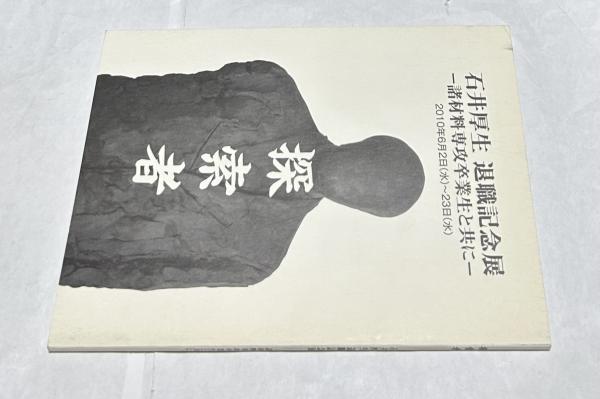 石井厚生 退職記念展
－諸材料専攻卒業生と共に－
2010年6月2日(水)～23日(水)
探索者